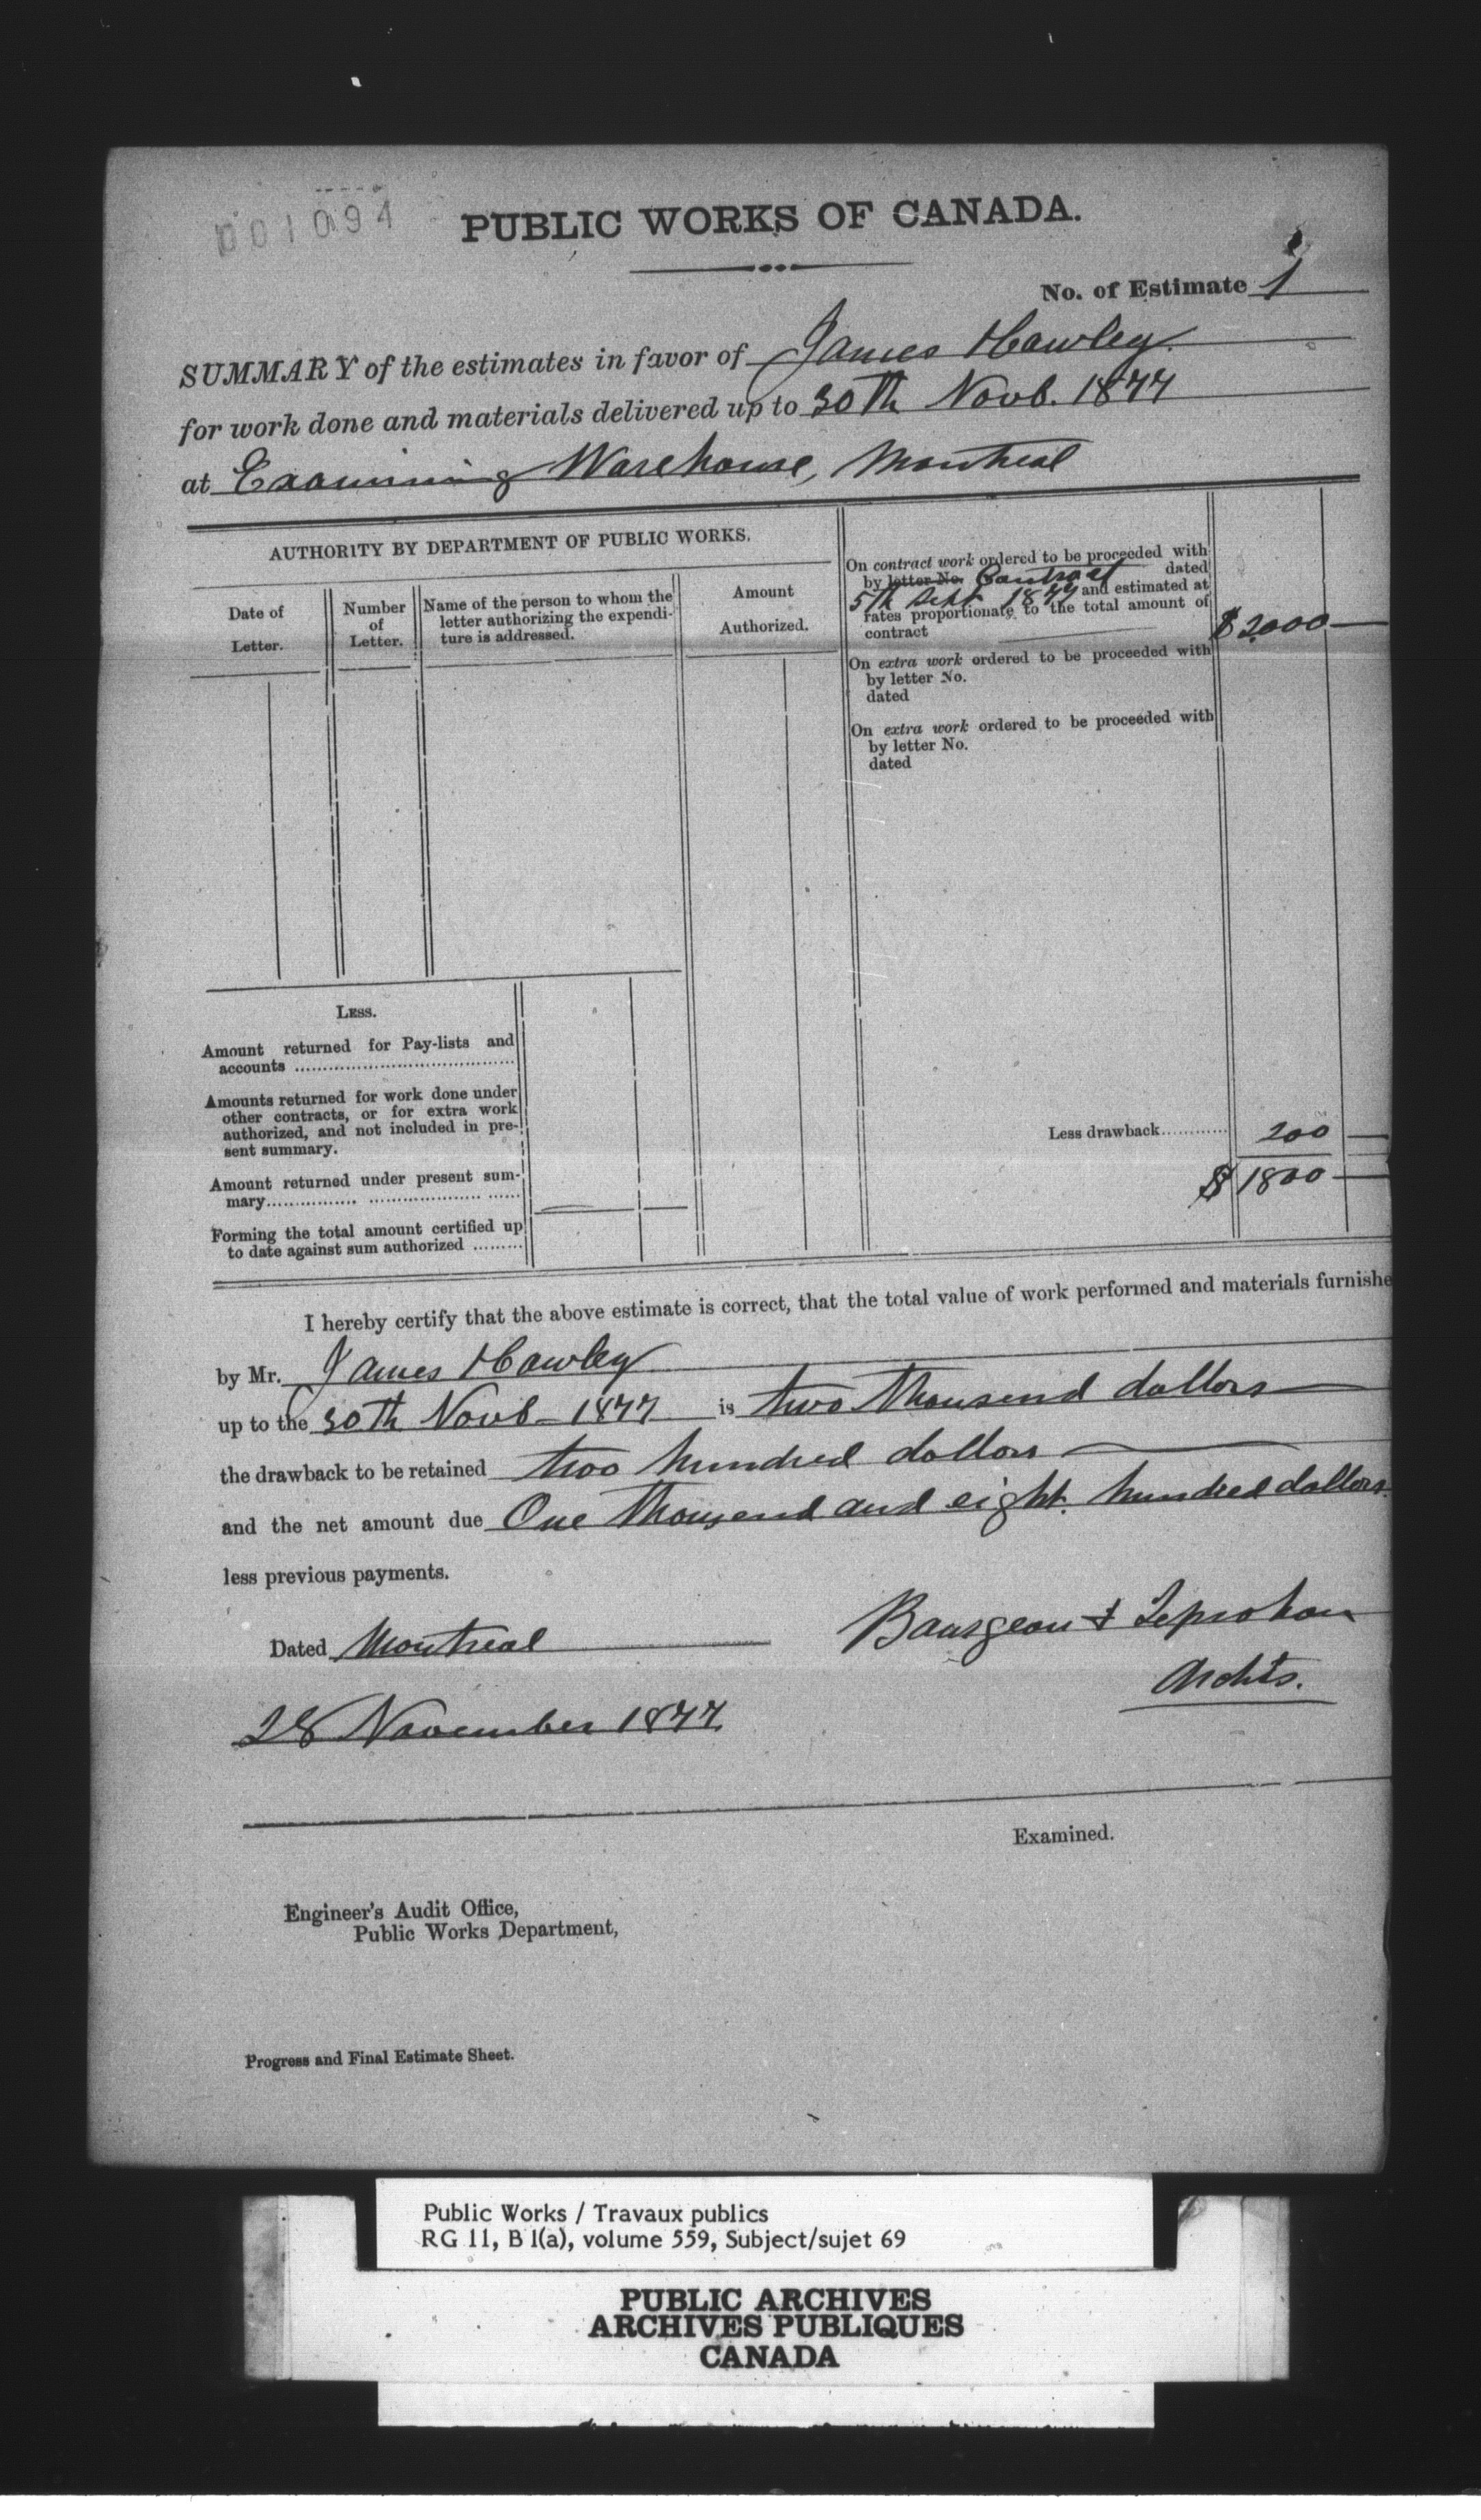 001094
PUBLIC WORKS OF CANADA.
No. of Estimate 1
SUMMARY of the estimates in favor of James Hawley
for work done and materials delivered up to 30th Novb. 1877
at Examining Warehouse, Montreal
AUTHORITY BY DEPARTMENT OF PUBLIC WORKS.
Date of
Letter.
Number
of
Letter.
Name of the person to whom the
letter authorizing the expendi-
ture is addressed.
Amount
Authorized.
On contract work ordered to be proceeded with
by letter No. Contract dated
5th Sept 1877 and estimated at
rates proportionate to the total amount of
contract
$ 2000 —
On extra work ordered to be proceeded with
by letter No.
dated
On extra work ordered to be proceeded with
by letter No.
dated
LESS.
Amount returned for Pay-lists and
accounts
Amounts returned for work done under
other contracts, or for extra work
authorized, and not included in pre-
sent summary.
Amount returned under present sum-
mary
Forming the total amount certified up
to date against sum authorized
Less drawback 200 —
$ 1800 —
I hereby certify that the above estimate is correct, that the total value of work performed and materials furnishe
by Mr. James Hawley
up to the 30th Novb - 1877 is two thousend dollors
the drawback to be retained two hundred dollors
and the net amount due One thousend and eight hundred dollors
less previous payments.
Dated Montreal
28 November 1877
Bourgeau & Leprohon
Archts.
Examined.
Engineer's Audit Office,
Public Works Department,
Progress and Final Estimate Sheet.
Public Works / Travaux publics
RG 11, B 1(a), volume 559, Subject/sujet 69
PUBLIC ARCHIVES
ARCHIVES PUBLIQUES
CANADA